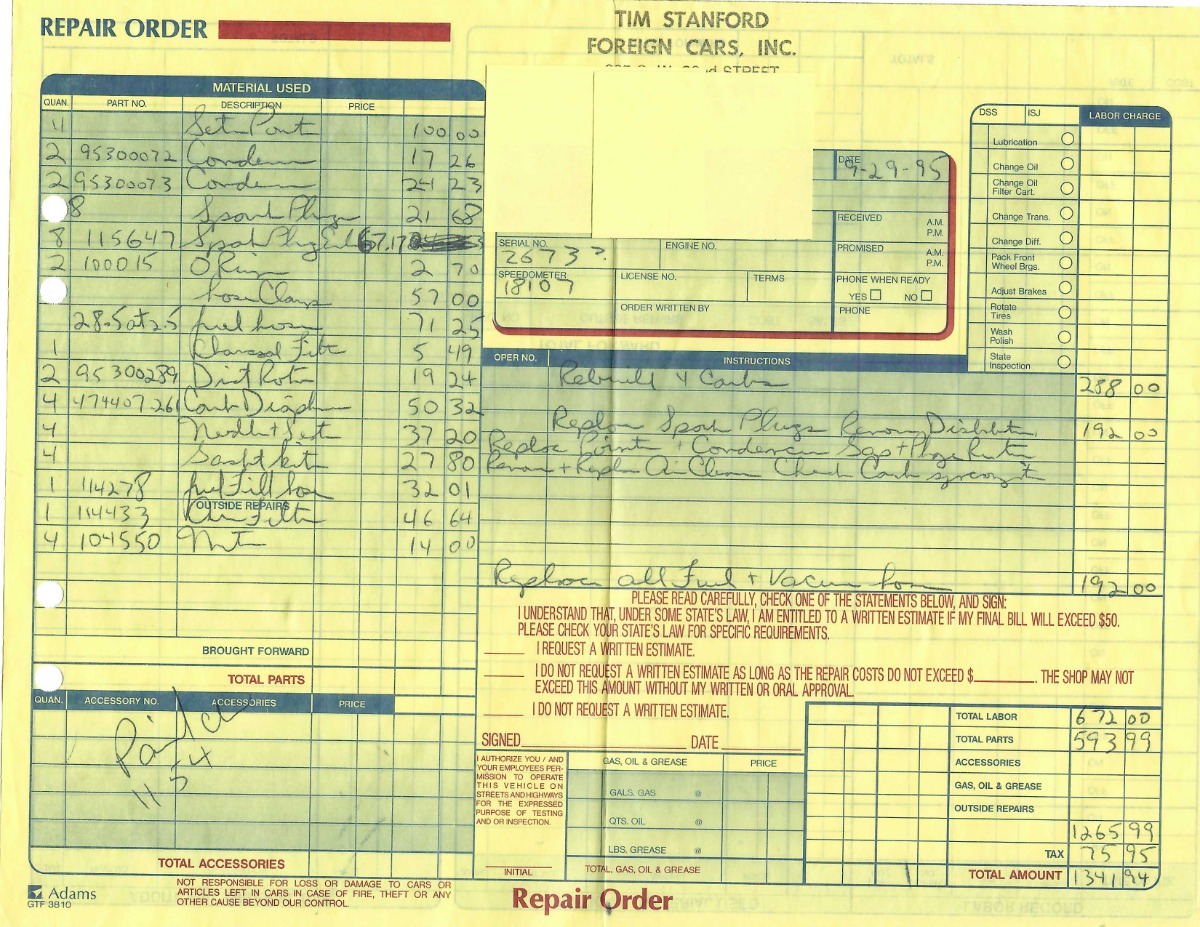 REPAIR ORDER
TIM STANFORD
FOREIGN CARS, INC.
MATERIAL USED
QUAN. PART NO. DESCRIPTION PRICE
Set Point 100 00
2 95300072 17 26
2 95300073 24 23
8 Spark Plugs 21 68
8 115647 Spark Plug 67.17
2 100015 O Ring 2 70
hose Clamp 57 00
fuel hose 71 25
1 Charcoal Filt 5 49
2 95300289 Dist Rotor 19 24
4 474407.261 Carb Diaph 50 32
4 Needle + Seat 37 20
4 27 80
1 114278 fuel Fill hose 32 01
OUTSIDE REPAIRS
1 114433 Filter 46 64
4 104550 14 00
BROUGHT FORWARD
TOTAL PARTS
QUAN. ACCESSORY NO. ACCESSORIES PRICE
11-5
TOTAL ACCESSORIES
Adams
GTF 3810
NOT RESPONSIBLE FOR LOSS OR DAMAGE TO CARS OR
ARTICLES LEFT IN CARS IN CASE OF FIRE, THEFT OR ANY
OTHER CAUSE BEYOND OUR CONTROL.
DATE
9-29-95
RECEIVED A.M.
P.M.
SERIAL NO. ENGINE NO. PROMISED A.M.
2673 ?. P.M.
SPEEDOMETER LICENSE NO. TERMS PHONE WHEN READY
18107 YES NO
ORDER WRITTEN BY PHONE
DSS ISJ LABOR CHARGE
Lubrication
Change Oil
Change Oil
Filter Cart.
Change Trans.
Change Diff.
Pack Front
Wheel Brgs.
Adjust Brakes
Rotate
Tires
Wash
Polish
State
Inspection
OPER NO. INSTRUCTIONS
Rebuild 4 Carbs 288 00
Replace Spark Plugs Remove Distributor 192 00
Replace Points + Condensers
Remove + Replace Air Cleaner Check Carb
Replace all Fuel + Vacuum hose 192 00
PLEASE READ CAREFULLY, CHECK ONE OF THE STATEMENTS BELOW, AND SIGN:
I UNDERSTAND THAT, UNDER SOME STATE'S LAW, I AM ENTITLED TO A WRITTEN ESTIMATE IF MY FINAL BILL WILL EXCEED $50.
PLEASE CHECK YOUR STATE'S LAW FOR SPECIFIC REQUIREMENTS.
I REQUEST A WRITTEN ESTIMATE.
I DO NOT REQUEST A WRITTEN ESTIMATE AS LONG AS THE REPAIR COSTS DO NOT EXCEED $ . THE SHOP MAY NOT
EXCEED THIS AMOUNT WITHOUT MY WRITTEN OR ORAL APPROVAL.
I DO NOT REQUEST A WRITTEN ESTIMATE.
SIGNED DATE
I AUTHORIZE YOU / AND
YOUR EMPLOYEES PER-
MISSION TO OPERATE
THIS VEHICLE ON
STREETS AND HIGHWAYS
FOR THE EXPRESSED
PURPOSE OF TESTING
AND OR INSPECTION.
INITIAL
GAS, OIL & GREASE PRICE
GALS. GAS @
QTS. OIL @
LBS. GREASE @
TOTAL, GAS, OIL & GREASE
TOTAL LABOR 672 00
TOTAL PARTS 593 99
ACCESSORIES
GAS, OIL & GREASE
OUTSIDE REPAIRS
1265 99
TAX 75 95
TOTAL AMOUNT 1341 94
Repair Order